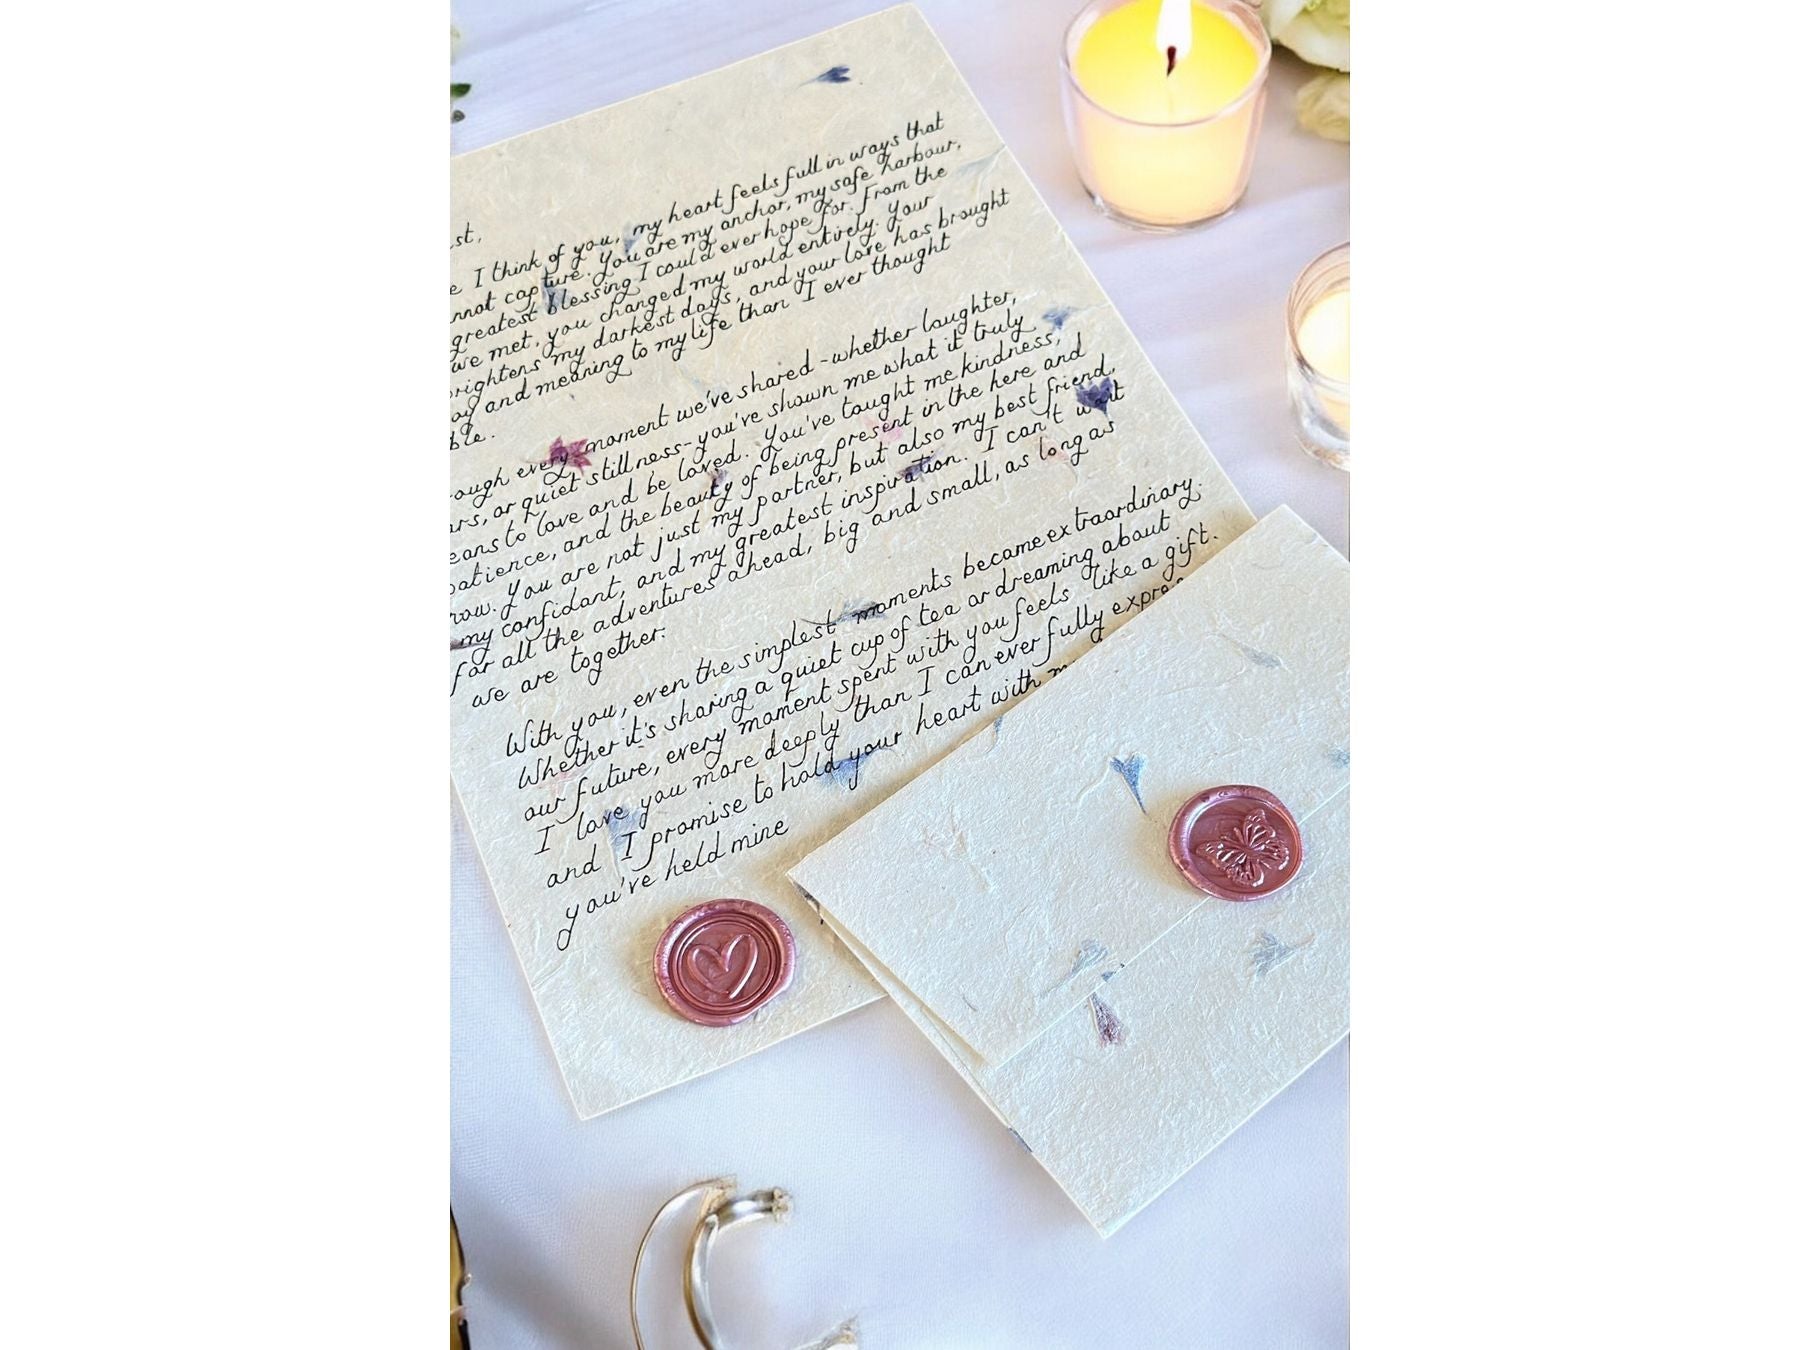 st,
I think of you, my heart feels full in ways that
nnot capture. You are my anchor, my safe harbour,
greatest blessing I could ever hope for. From the
we met, you changed my world entirely. Your
rightens my darkest days, and your love has brought
oy and meaning to my life than I ever thought
ble.
rough every moment we've shared - whether laughter,
ars, or quiet stillness - you've shown me what it truly
eans to love and be loved. You've taught me kindness,
patience, and the beauty of being present in the here and
now. You are not just my partner, but also my best friend,
my confidant, and my greatest inspiration. I can't wait
for all the adventures ahead, big and small, as long as
we are together.
With you, even the simplest moments became extraordinary.
Whether it's sharing a quiet cup of tea or dreaming about
our future, every moment spent with you feels like a gift.
I love you more deeply than I can ever fully expre
and I promise to hold your heart with m
you've held mine